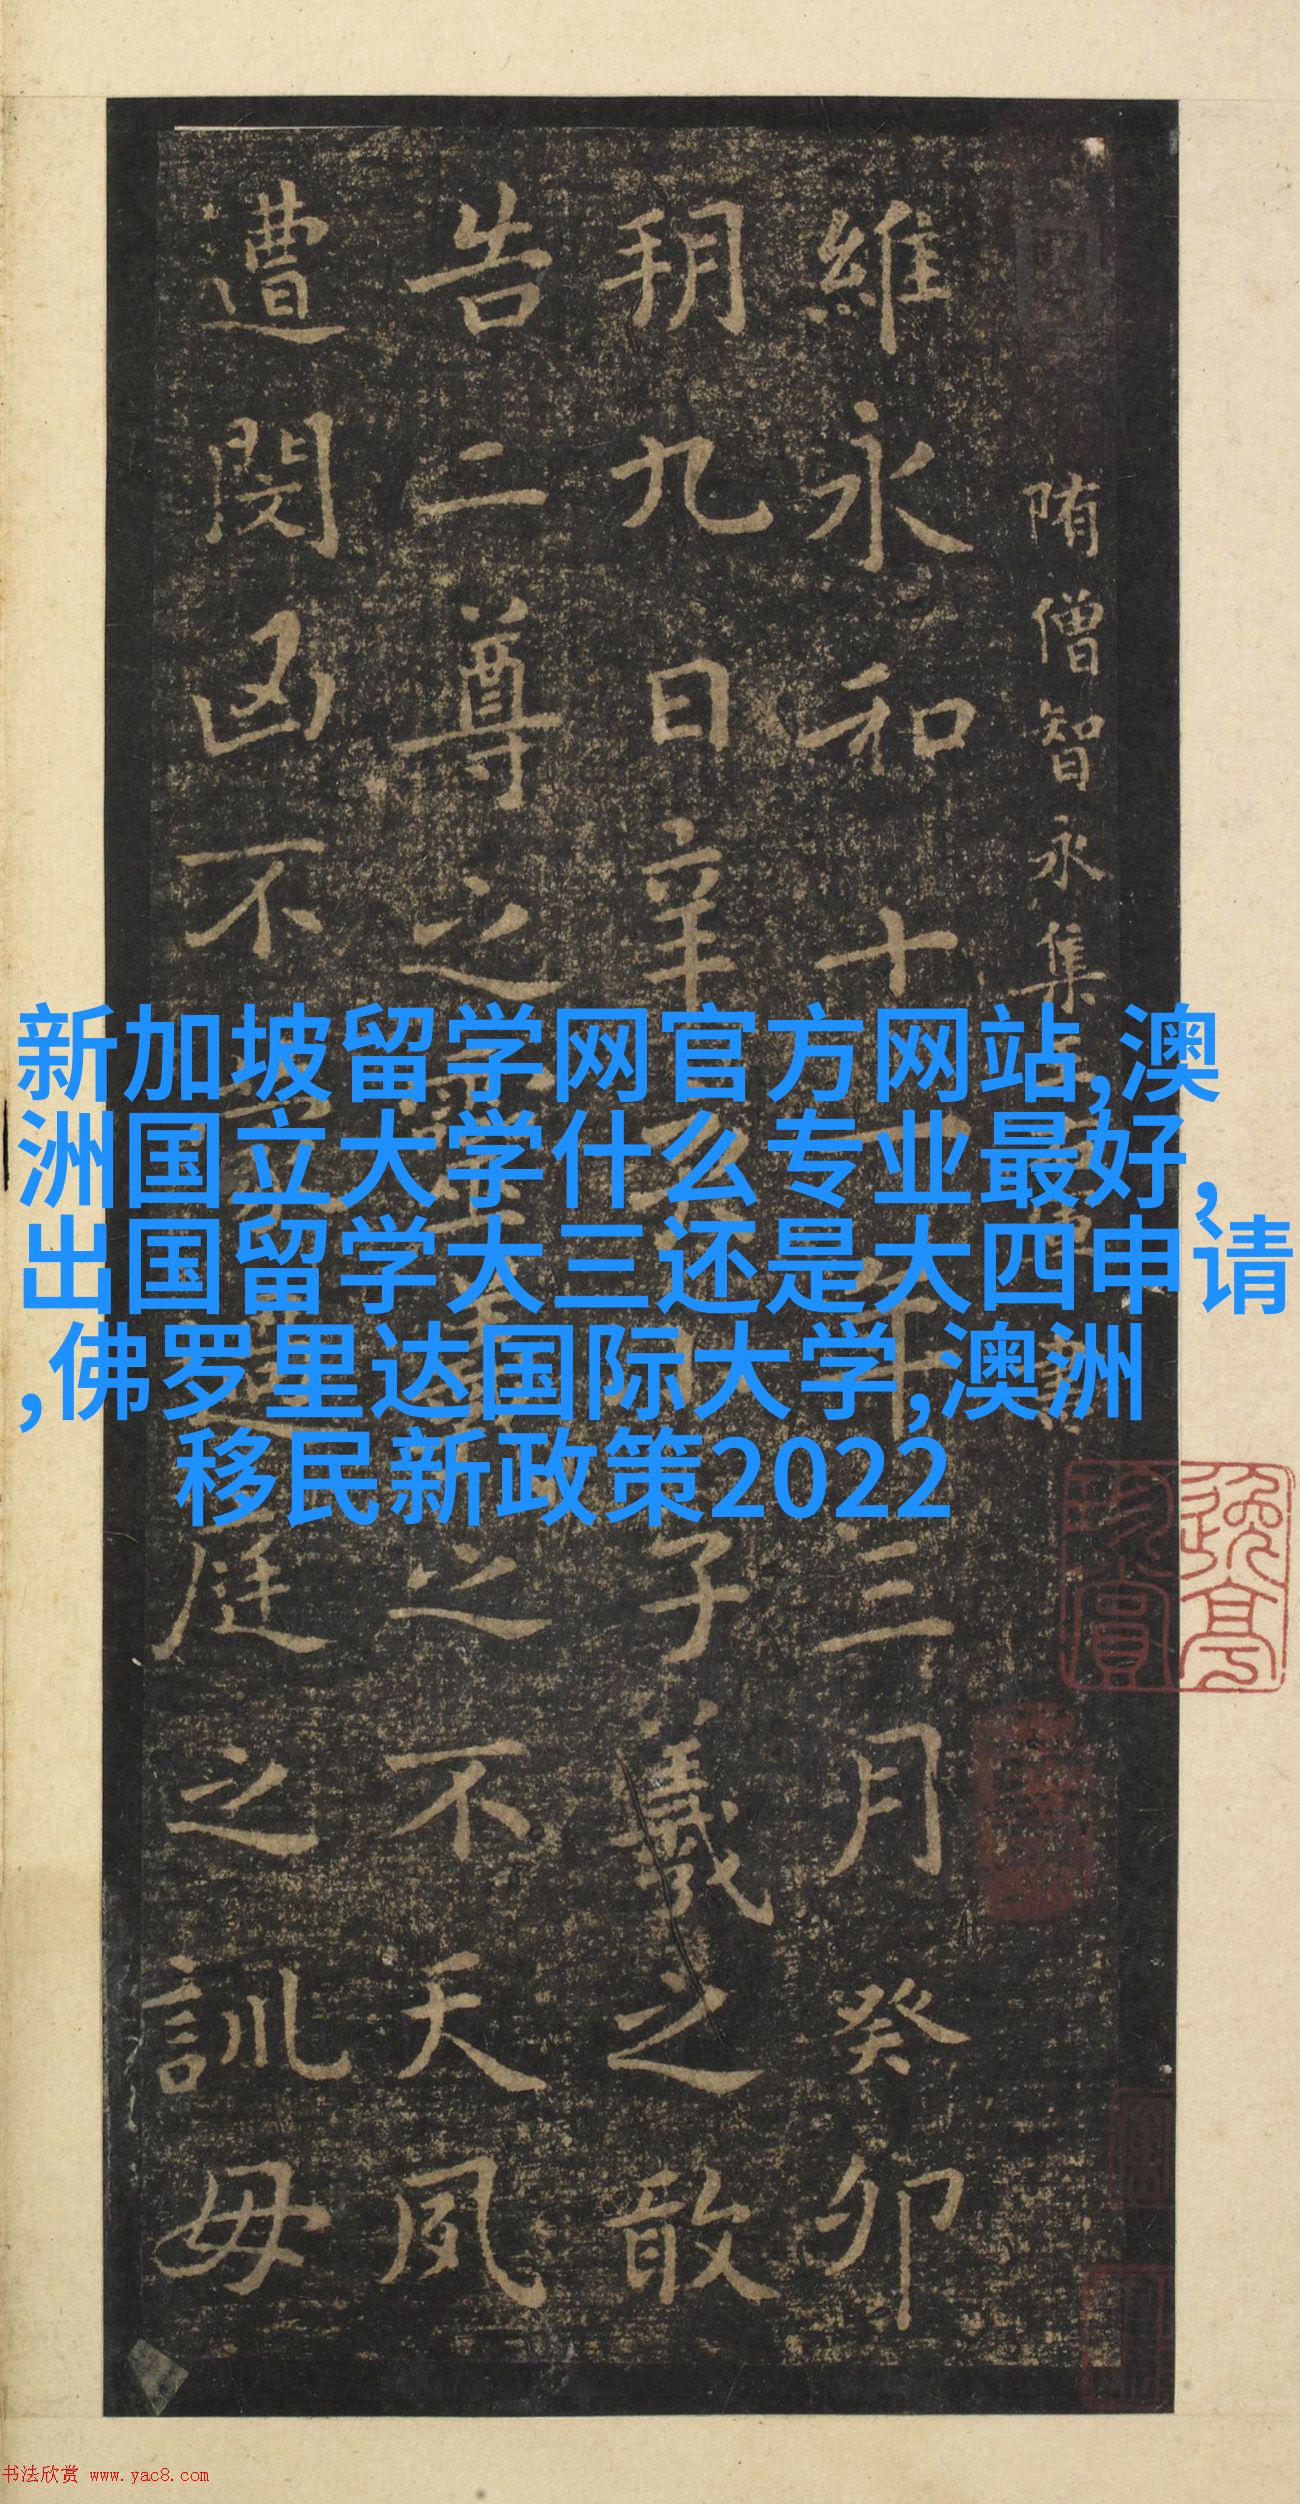 新加坡留学网官方网站,澳
洲国立大学什么专业最好,
出国留学大三还是大四申请
,佛罗里达国际大学,澳洲
移民新政策2022
隋僧智永集
維永和十一年三月癸卯
朔九日辛亥小子羲之敢
告二尊之靈羲之不天夙
遭閔凶不蒙過庭之訓毋
书法欣赏 www.yac8.com